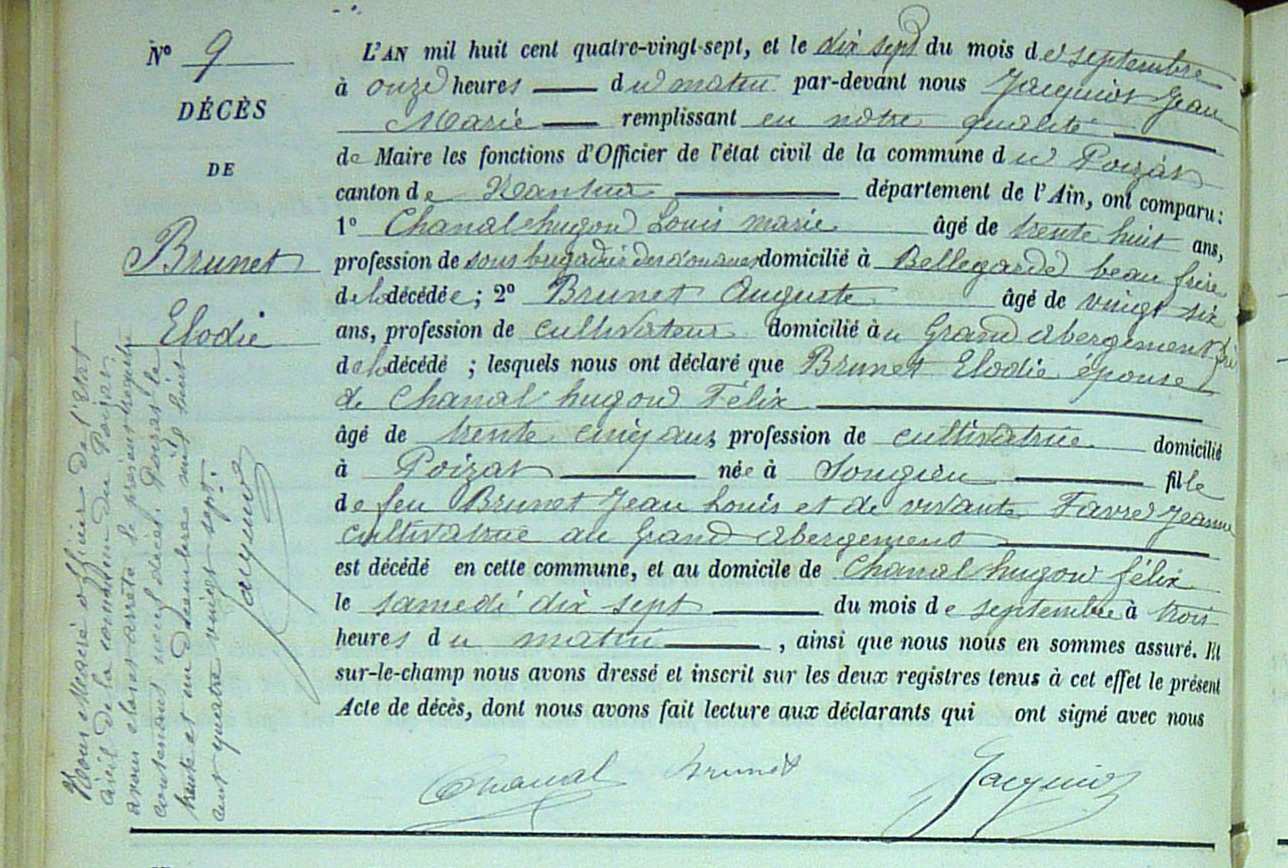 N° 9
DÉCÈS
DE
Brunet
Elodie
L'AN mil huit cent quatre-vingt-sept, et le dix sept du mois de septembre
à onze heures du matin par-devant nous Jacquiot Jean
Marie remplissant en notre qualité
de Maire les fonctions d'Officier de l'état civil de la commune du Poizat
canton de Nantua département de l'Ain, ont comparu:
1° Chanal hugon Louis marie âgé de trente huit ans,
profession de sous brigadier des douanes domicilié à Bellegarde beau frère
de la décédée; 2° Brunet Auguste âgé de vingt six
ans, profession de cultivateur domicilié au Grand abergement
de la décédé ; lesquels nous ont déclaré que Brunet Elodie épouse
de Chanal hugon Félix
âgé de trente cinq ans, profession de cultivatrice domicilié
à Poizat née à Songieu fille
de feu Brunet Jean Louis et de vivante Favre Jeanne
cultivatrice au Grand abergement
est décédé en cette commune, et au domicile de Chanal hugon félix
le samedi dix sept du mois de septembre à trois
heures du matin , ainsi que nous nous en sommes assuré. Et
sur-le-champ nous avons dressé et inscrit sur les deux registres tenus à cet effet le présent
Acte de décès, dont nous avons fait lecture aux déclarants qui ont signé avec nous
Chanal Brunet Jacquiot
Nous Maire officier de l'Etat
civil de la commune du Poizat
avons clos et arrêté le présent registre
contenant neuf décès Poizat le
trente et un décembre mil huit
cent quatre vingt sept.
Jacquiot